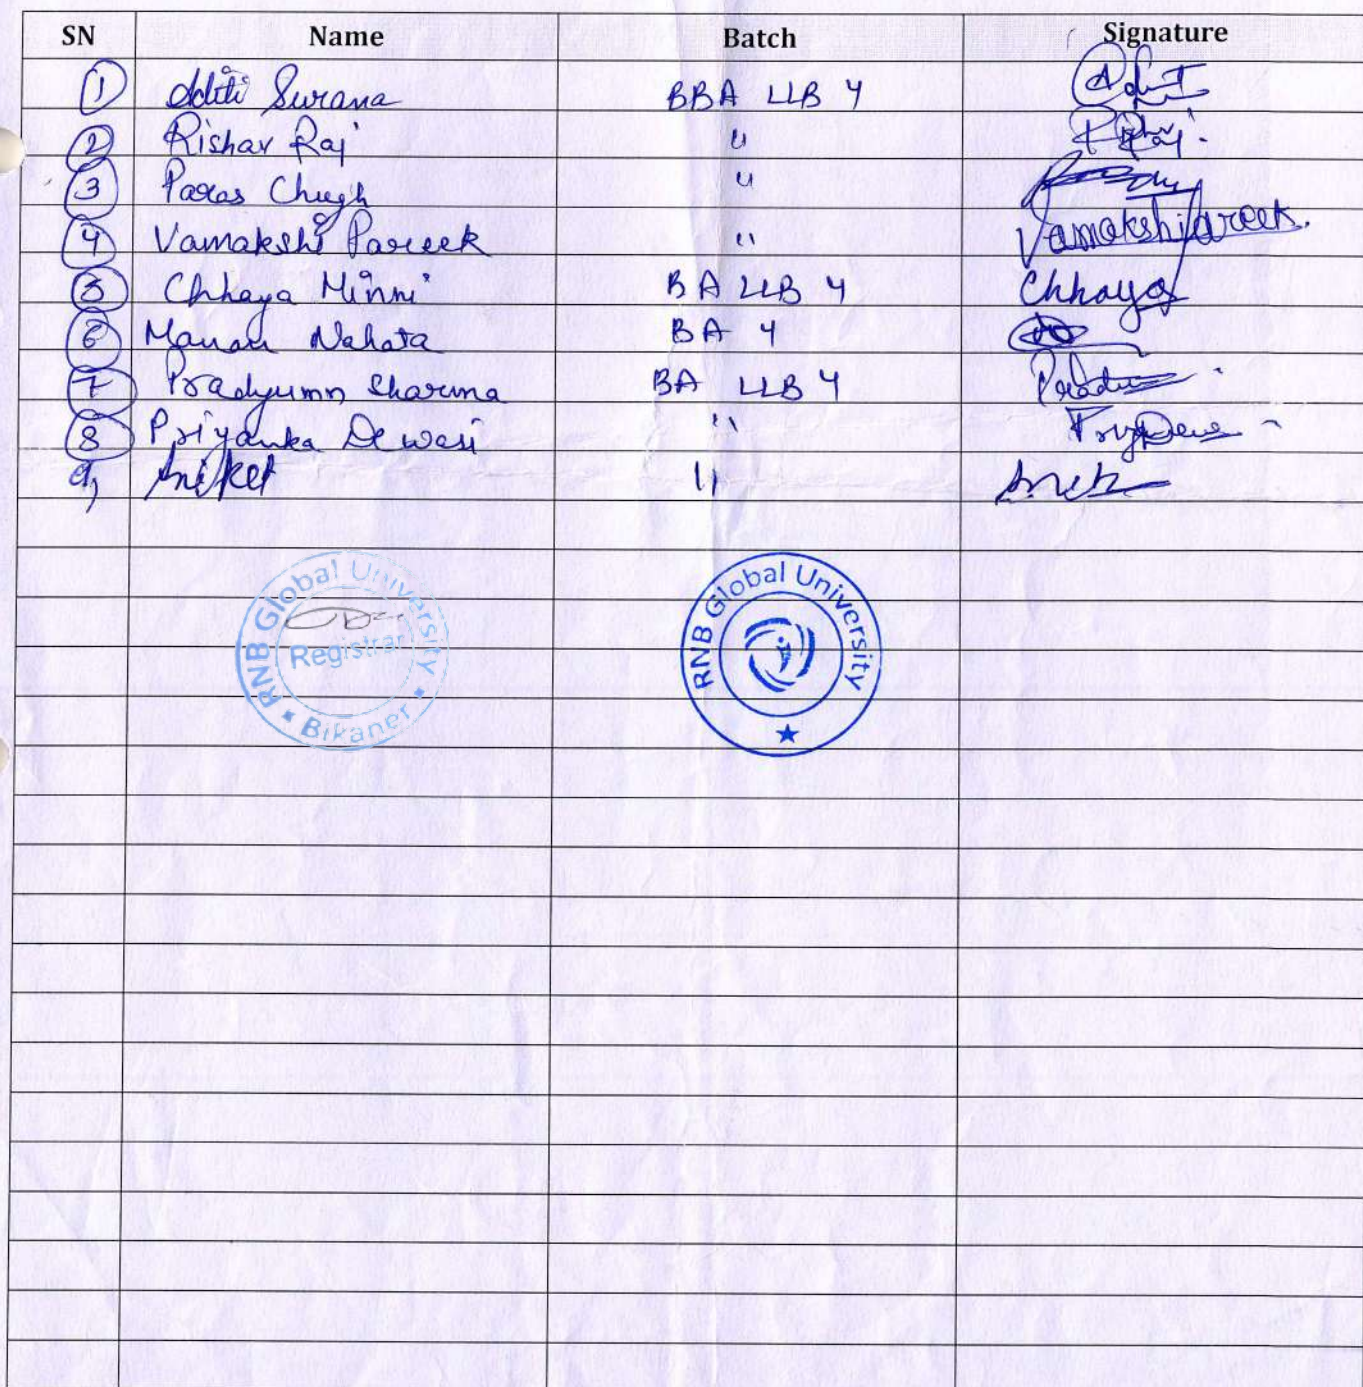 SN Name Batch Signature
1 Aditi Surana BBA LLB 4 Aditi
2 Rishav Raj " Raj
3 Paras Chugh "
4 Vamakshi Pareek " Vamakshi Pareek
5 Chhaya Minni BA LLB 4 Chhaya
6 Manan Nahata BA 4
7 Pradyumn Sharma BA LLB 4
8 Priyanka Dewasi "
9, Aniket "
RNB Global University
Registrar
Bikaner
RNB Global University